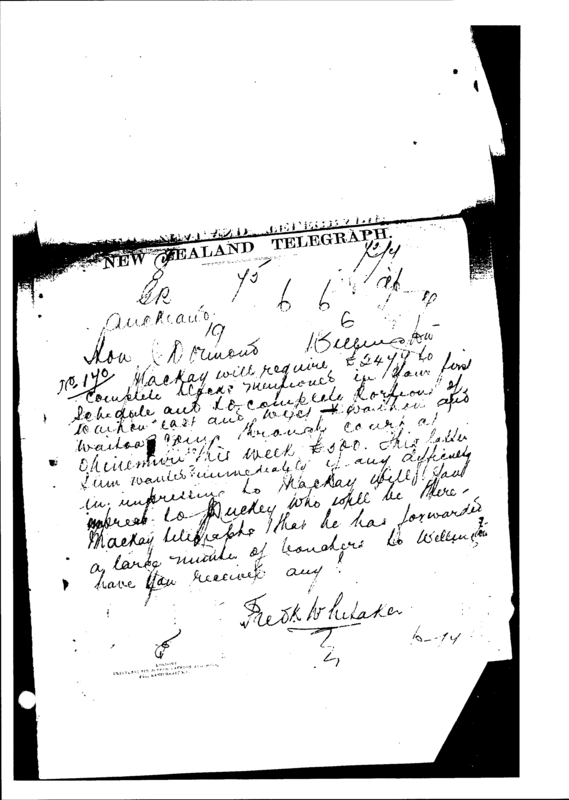 NEW ZEALAND TELEGRAPH.
8 45
GR
Auckland 6 6
19 6
Hon J D Ormond Wellington
No 170 Mackay will require £2477 to
complete blocks mentioned in your first
schedule and to complete portions of
east and west and
Waitoa going through court at
Ohinemuri this week £500. This latter
sum wanted immediately if any difficulty
in impressing to Mackay will you
imprest to Puckey who will be there -
Mackay telegraphs that he has forwarded
a large number of vouchers to Wellington
have you received any?
Fredk Whitaker